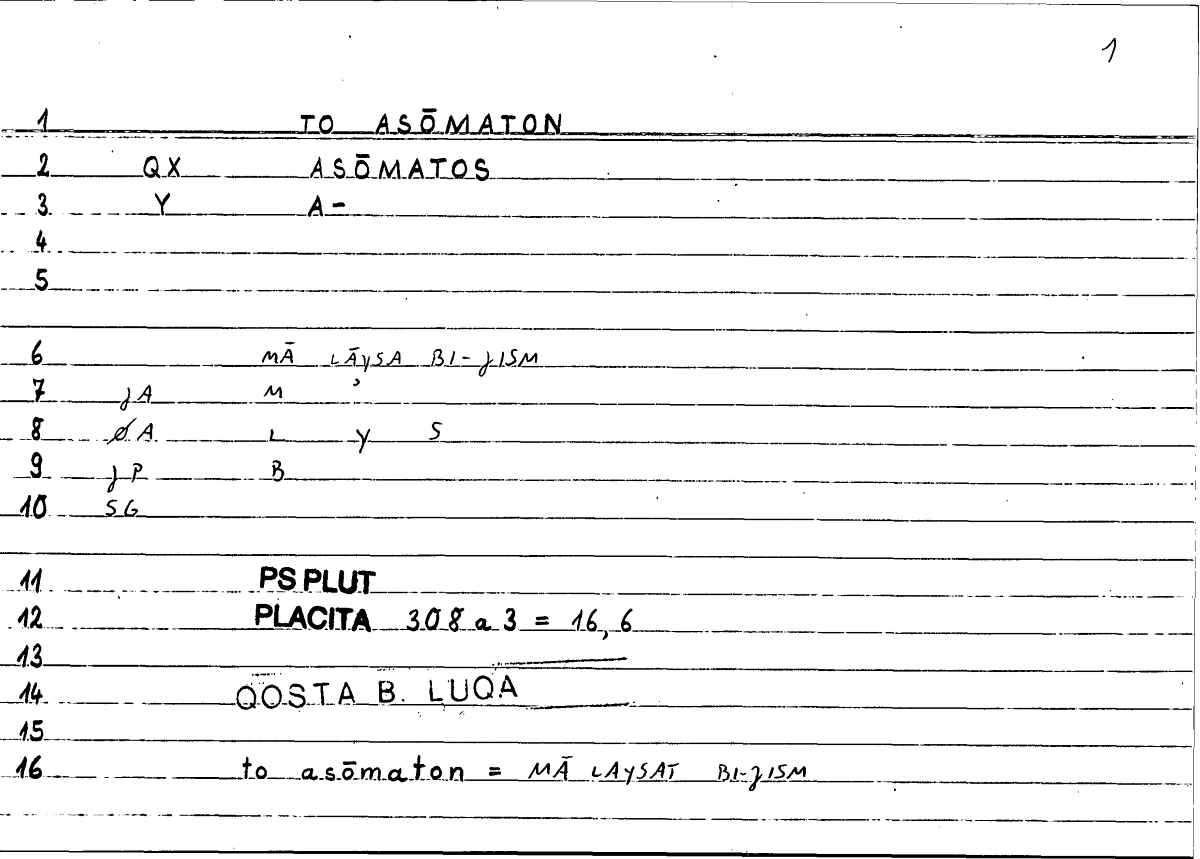 1
1 TO ASŌMATON
2 QX ASŌMATOS
3 Y A-
4
5
6 MĀ LĀYSA BI-JISM
7 JA M ʾ
8 ØA L Y S
9 JP B
10 SG
11 PS PLUT
12 PLACITA 308 a 3 = 16,6
13
14 QOSTA B. LUQA
15
16 to asōmaton = MĀ LAYSAT BI-JISM